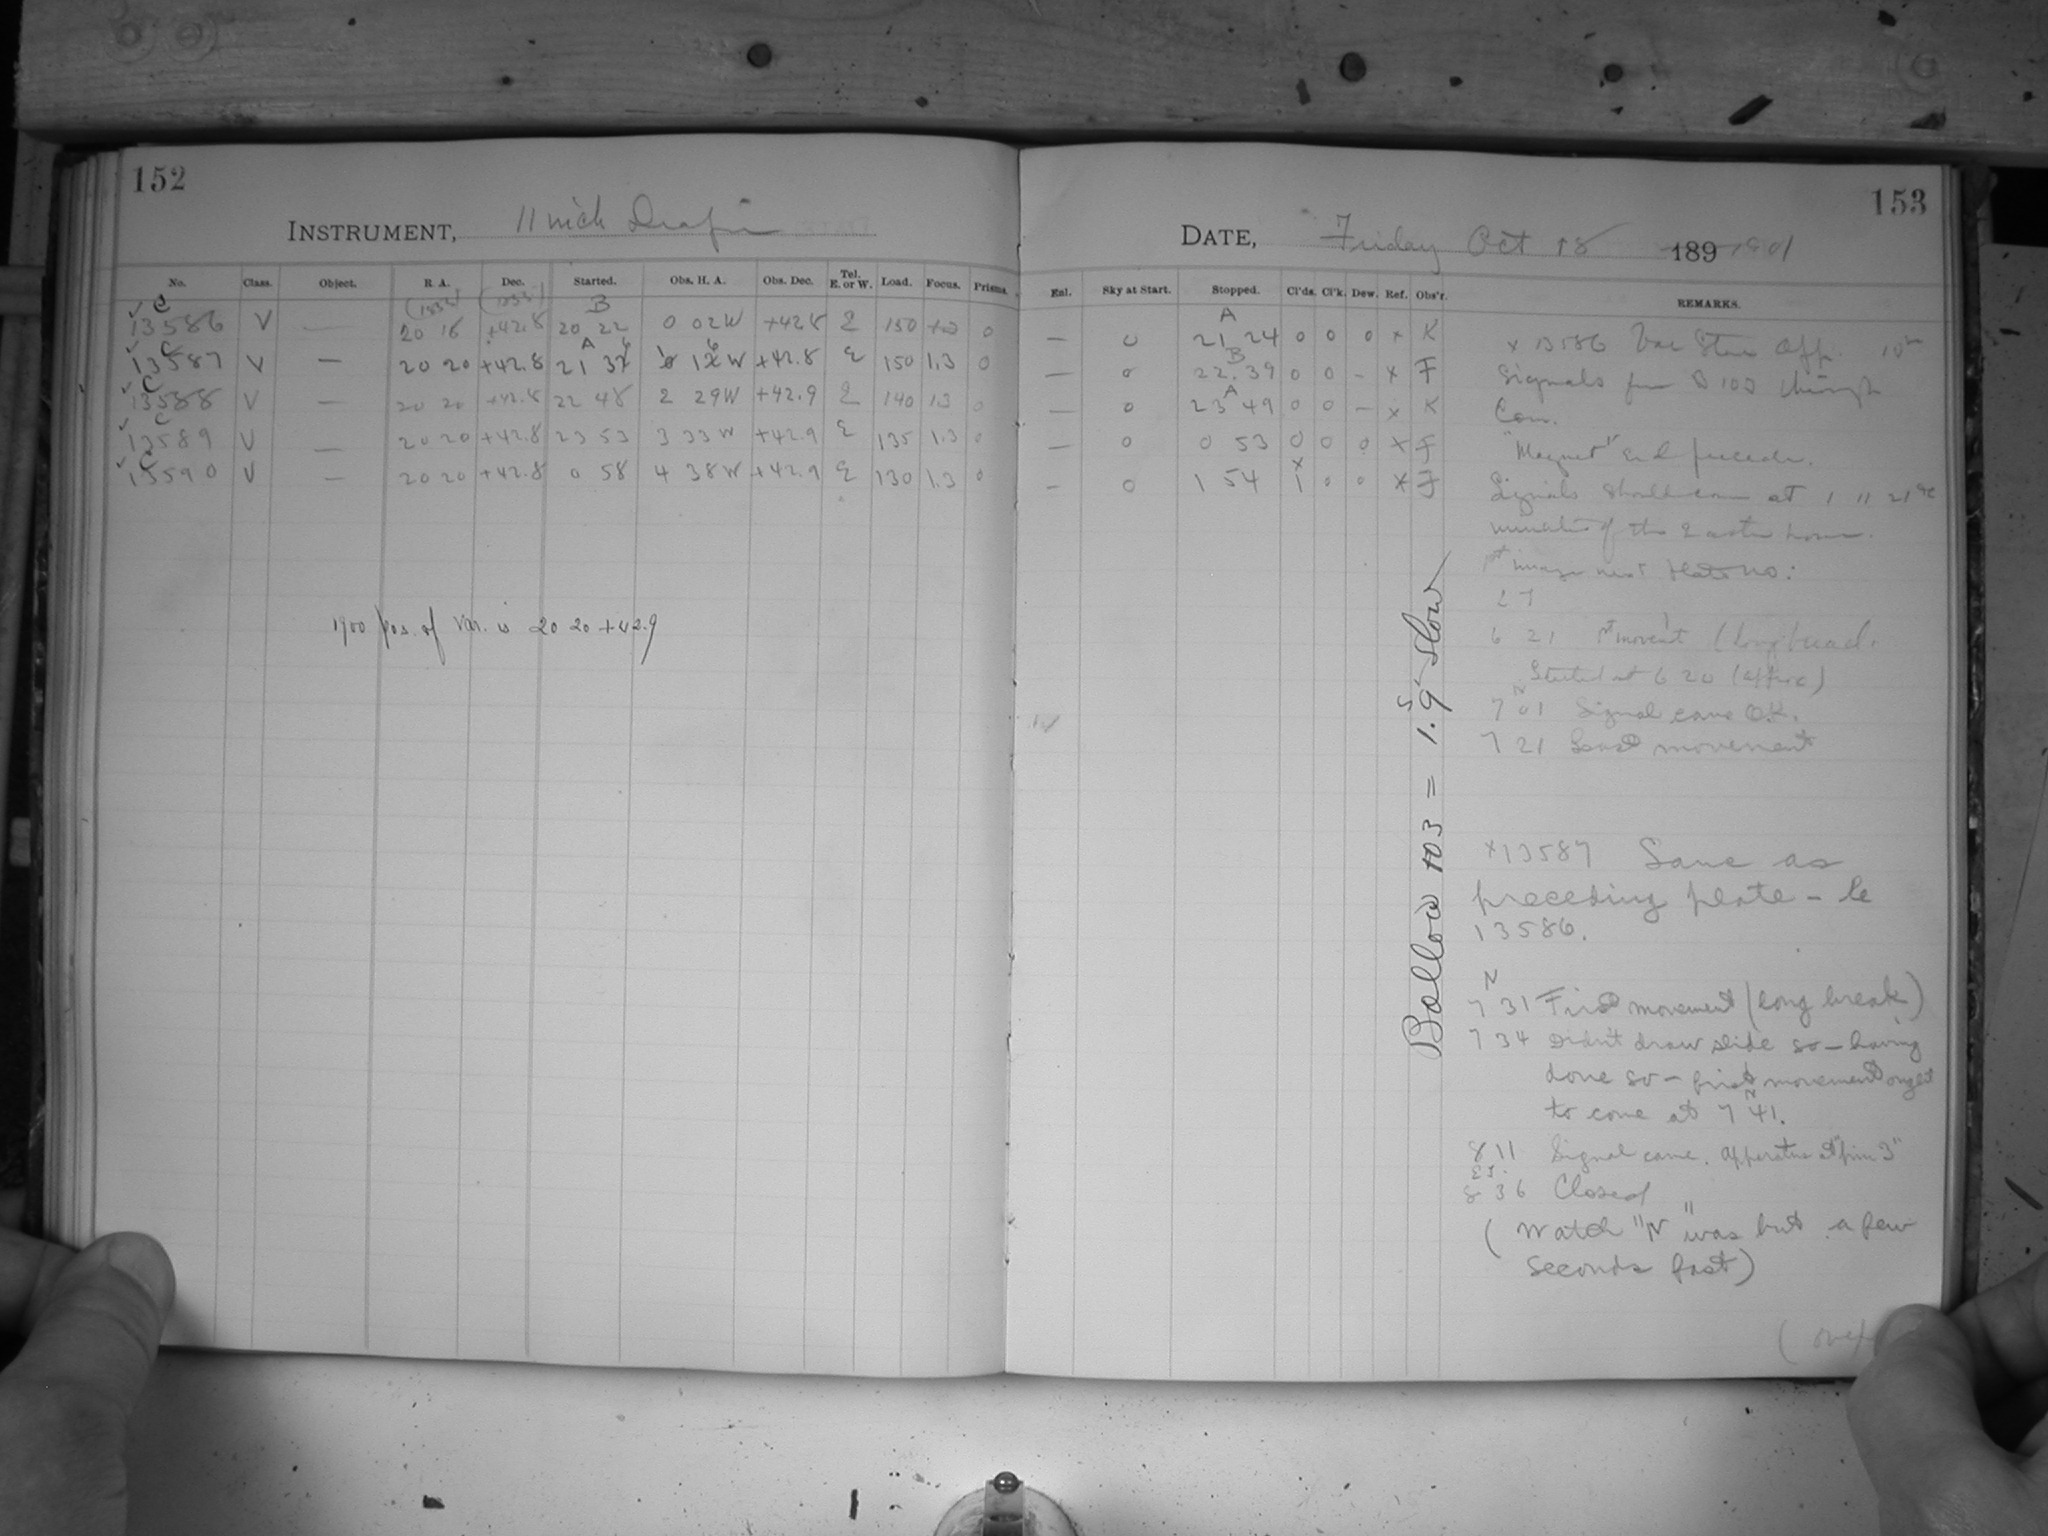 152
INSTRUMENT, 11 inch Draper
No. Class. Object. R. A. Dec. Started. Obs. H. A. Obs. Dec. Tel. E. or W. Load. Focus. Prisms.
(1855) (1855) B
✓ C
13586 V — 20 18 +42.8 20 22 0 02W +42.8 E 150 1.3 0
✓ C A
13587 V — 20 20 +42.8 21 37 1 16 W +42.8 E 150 1.3 0
✓ C
13588 V — 20 20 +42.8 22 48 2 29W +42.9 E 140 1.3 0
✓ C
13589 V — 20 20 +42.8 23 53 3 33 W +42.9 E 135 1.3 0
✓ C
13590 V — 20 20 +42.8 0 58 4 38W +42.9 E 130 1.3 0
1900 pos. of Var. is 20 20 +42.9
153
DATE, Friday Oct 18 189 1901
Enl. Sky at Start. Stopped. Cl'ds. Cl'k. Dew. Ref. Obs'r. REMARKS.
A
— 0 21 24 0 0 0 x K
B
— 0 22.39 0 0 – x F
A
— 0 23 49 0 0 – x K
— 0 0 53 0 0 0 x F
x
— 0 1 54 1 0 0 x F
x 13586 Var Star App. 10m
Signals from B 103 through
Com.
"Magnet" End precede.
Signals should come at 1 11 21 etc
minutes of the Easter hour.
image next plate no:
27
6 21 1st movem't (long break.
Started at 6 20 (approx)
N
7 01 Signal came O.K.
7 21 Last movement
Ballow 103 = 1.9s slow
x13587 Same as
preceding plate – ie
13586.
N
7 31 First movement (long break)
7 34 Didn't draw slide so – having
done so – first movement ought
N
to come at 7 41.
8 11 Signal came. Apparatus at "pin 3"
8 36 Closed
(Watch "N" was but a few
seconds fast)
(over